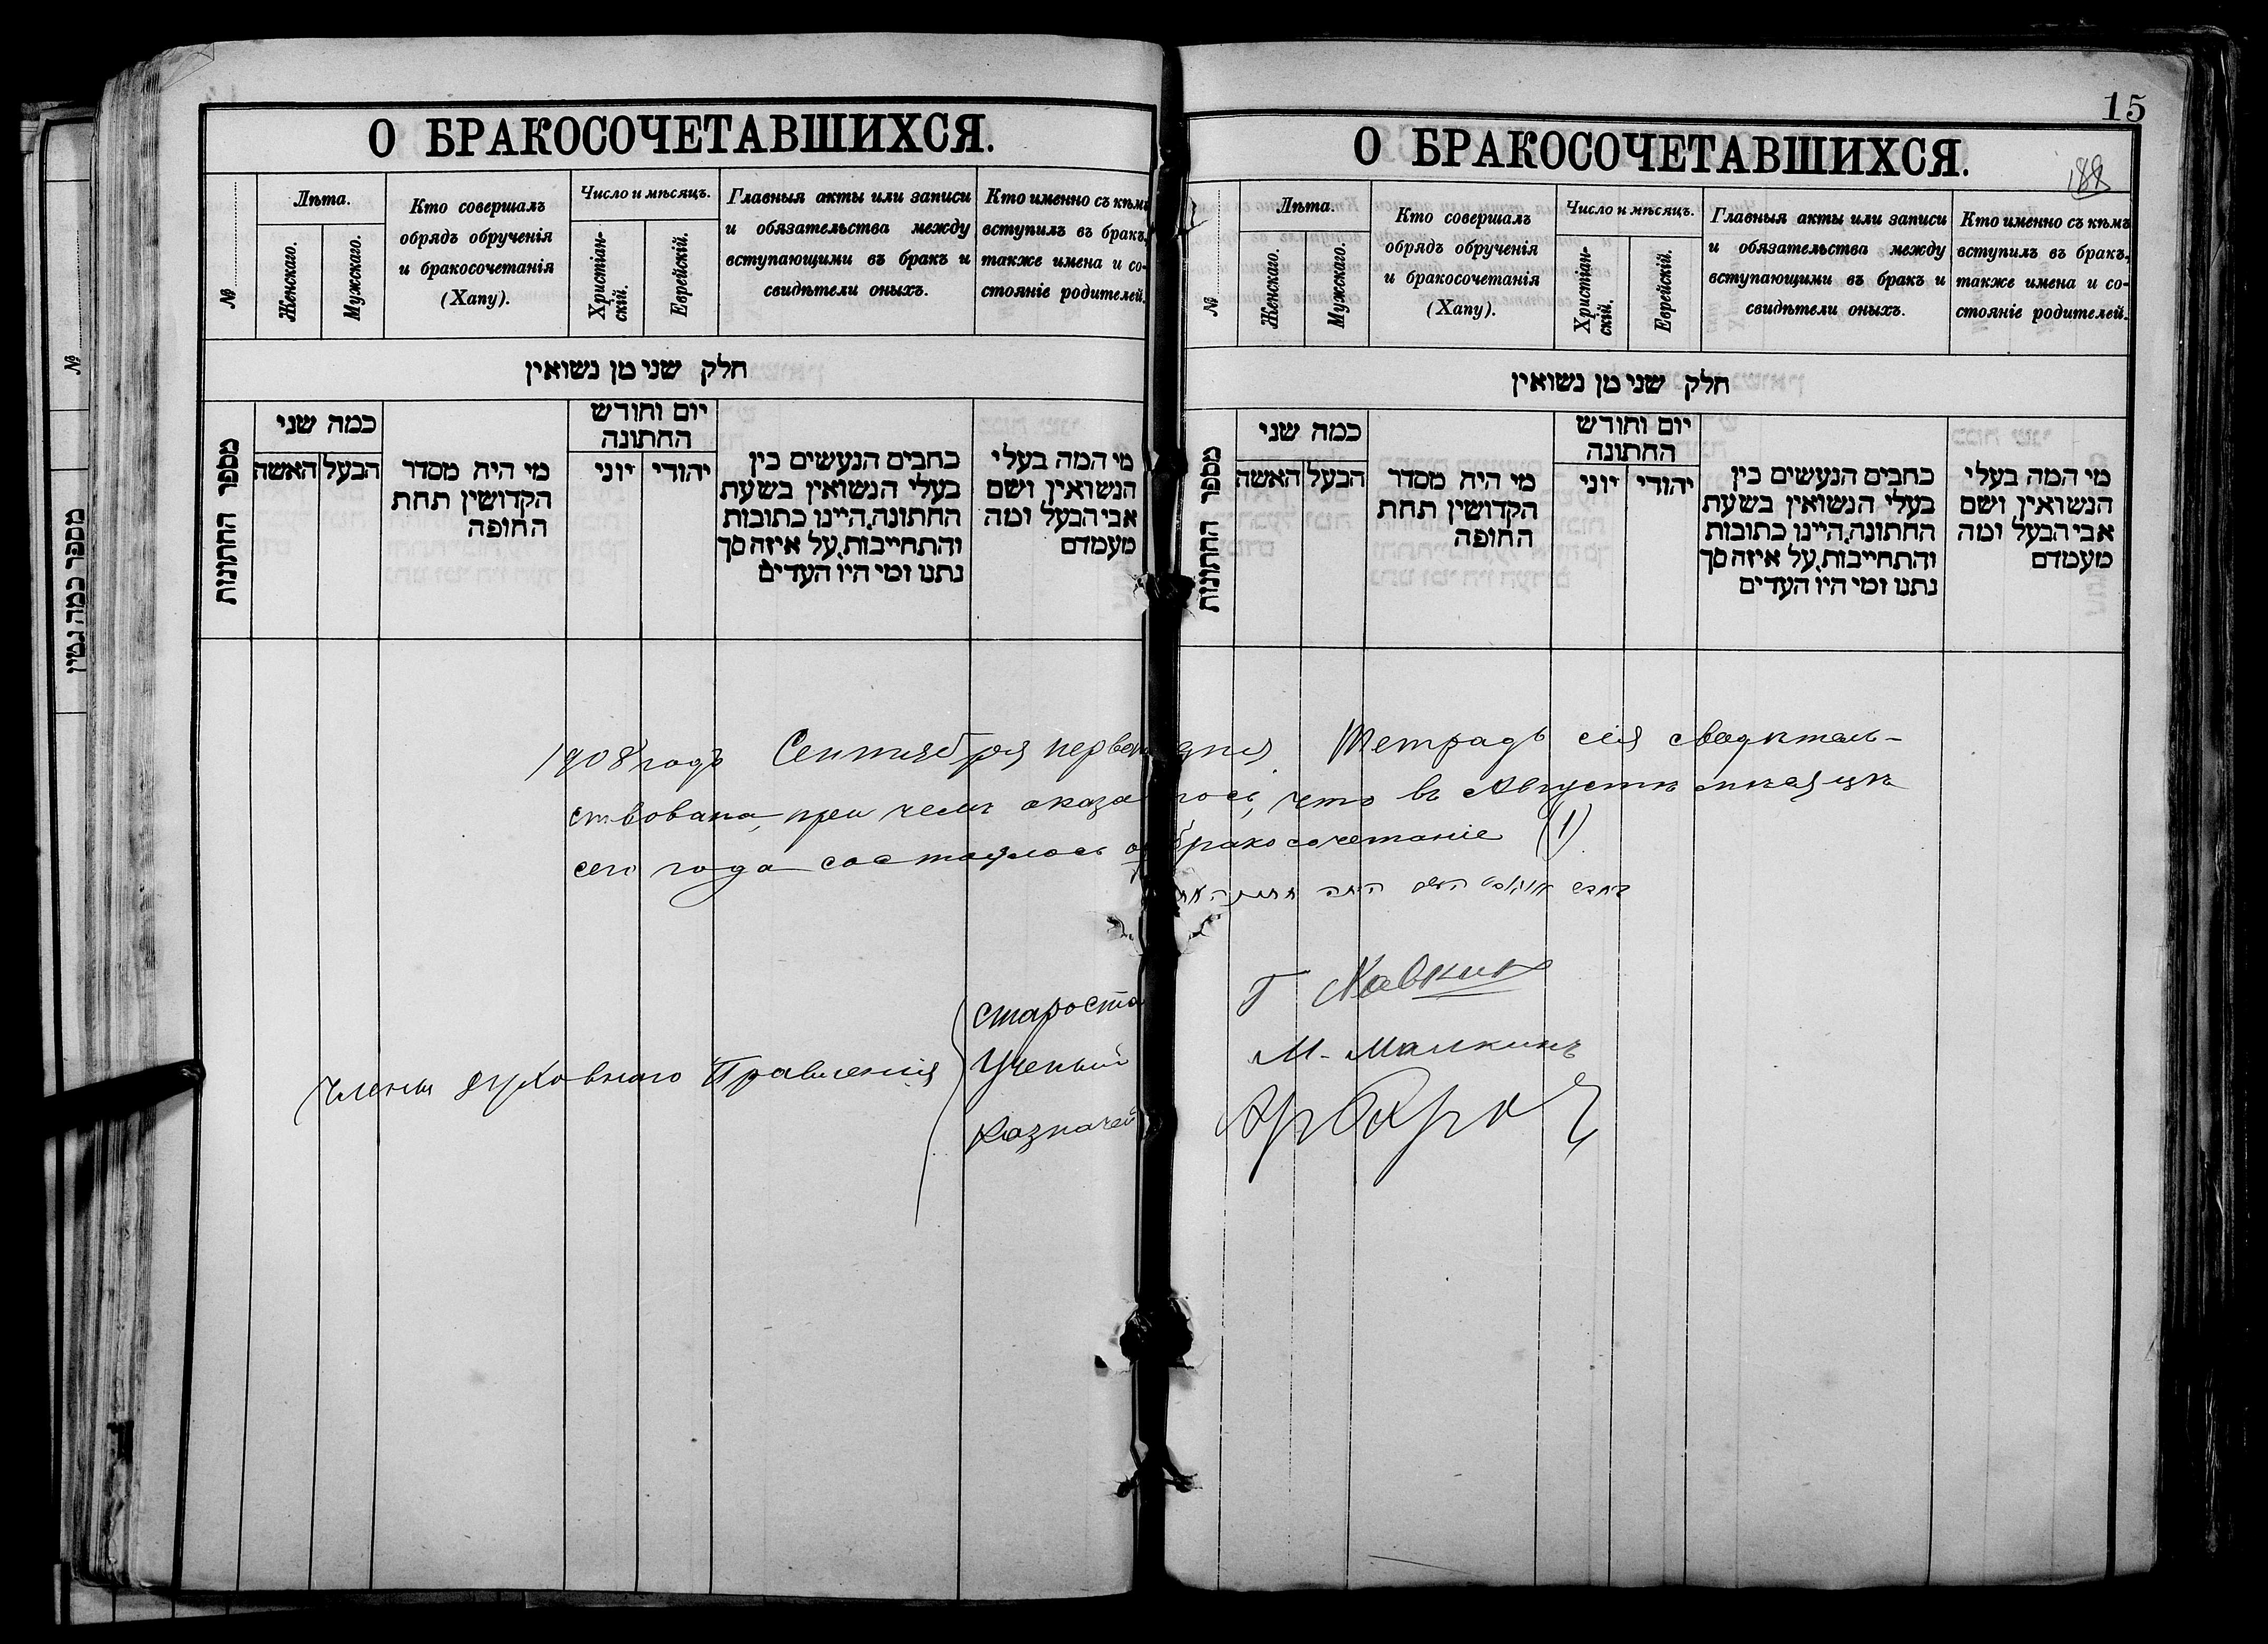 О БРАКОСОЧЕТАВШИХСЯ.
№
Лѣта.
Женскаго.
Мужскаго.
Кто совершалъ
обрядъ обрученія
и бракосочетанія
(Хапу).
Число и мѣсяцъ.
Христіан-
скій.
Еврейскій.
Главныя акты или записи
и обязательства между
вступающими въ бракъ и
свидѣтели оныхъ.
Кто именно съ кѣмъ
вступилъ въ бракъ,
также имена и со-
стояніе родителей.
חלק שני מן נשואין
מספר החתונות
כמה שני
האשה
הבעל
מי היה מסדר
הקדושין תחת
החופה
יום וחודש
החתונה
יוני
יהודי
כתבים הנעשים בין
בעלי הנשואין בשעת
החתונה, היינו כתובות
והתחייבות, על איזה סך
נתנו ומי היו העדים
מי המה בעלי
הנשואין ושם
אבי הבעל ומה
מעמדם
№
מספר כמה גטין
15
188
О БРАКОСОЧЕТАВШИХСЯ.
№
Лѣта.
Женскаго.
Мужскаго.
Кто совершалъ
обрядъ обрученія
и бракосочетанія
(Хапу).
Число и мѣсяцъ.
Христіан-
скій.
Еврейскій.
Главныя акты или записи
и обязательства между
вступающими въ бракъ и
свидѣтели оныхъ.
Кто именно съ кѣмъ
вступилъ въ бракъ,
также имена и со-
стояніе родителей.
חלק שני מן נשואין
מספר החתונות
כמה שני
האשה
הבעל
מי היה מסדר
הקדושין תחת
החופה
יום וחודש
החתונה
יוני
יהודי
כתבים הנעשים בין
בעלי הנשואין בשעת
החתונה, היינו כתובות
והתחייבות, על איזה סך
נתנו ומי היו העדים
מי המה בעלי
הנשואין ושם
אבי הבעל ומה
מעמדם
1908 годъ Сентября перваго дня Тетрадь сія свидѣтель-
ствована, при чемъ оказалось, что въ Августѣ мѣсяцѣ
сего года состоялось одно бракосочетаніе (1)
Члены Духовнаго Правленія
Староста Г Хавкинъ
Ученый М. Малкинъ
Казначей